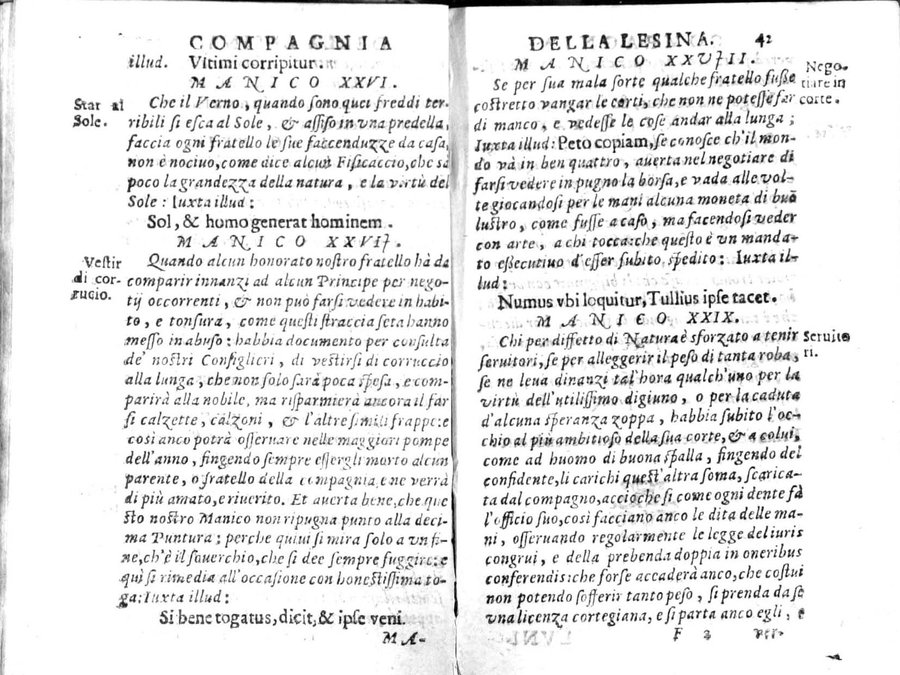 COMPAGNIA
illud. Vltimi corripitur.
MANICO XXVI.
Star al
Sole.
Che il Verno, quando sono quei freddi ter-
ribili si esca al Sole, & assiso in vna predella,
faccia ogni fratello le sue faccenduzze da casa,
non è nociuo, come dice alcun Fisicaccio, che sà
poco la grandezza della natura, e la virtù del
Sole: Iuxta illud:
Sol, & homo generat hominem.
MANICO XXVII.
Vestir
di cor-
rucio.
Quando alcun honorato nostro fratello hà da
comparir innanzi ad alcun Principe per nego-
tij occorrenti, & non può farsi vedere in habi-
to, e tonsura, come questi straccia seta hanno
messo in abuso: habbia documento per consulta
de' nostri Consiglieri, di vestirsi di corruccio
alla lunga, che non solo sarà poca spesa, e com-
parirà alla nobile, ma risparmierà ancora il far
si calzette, calzoni, & l'altre simili frappe: e
così anco potrà osseruare nelle maggiori pompe
dell'anno, fingendo sempre essergli morto alcun
parente, o fratello della compagnia, e ne verrà
di più amato, e riuerito. Et auerta bene, che que
sto nostro Manico non ripugna punto alla deci-
ma Puntura; perche quiui si mira solo a vn fi-
ne, ch'è il souerchio, che si dee sempre fuggire: e
quì si rimedia all'occasione con honestissima to-
ga: Iuxta illud:
Si bene togatus, dicit, & ipse veni.
MA-
DELLA LESINA. 42
MANICO XXVIII.
Nego-
tiare in
corte.
Se per sua mala sorte qualche fratello fusse
costretto vangar le corti, che non ne potesse far
di manco, e vedesse le cose andar alla lunga;
Iuxta illud: Peto copiam, se conosce ch'il mon-
do và in ben quattro, auerta nel negotiare di
farsi vedere in pugno la borsa, e vada alle vol-
te giocandosi per le mani alcuna moneta di buõ
lustro, come fusse a caso, ma facendosi veder
con arte, a chi tocca: che questo è un manda-
to essecutiuo d'esser subito spedito: Iuxta il-
lud:
Numus vbi loquitur, Tullius ipse tacet.
MANICO XXIX.
Seruito
ri.
Chi per diffetto di Natura è sforzato a tenir
seruitori, se per alleggerir il peso di tanta roba,
se ne leua dinanzi tal'hora qualch'uno per la
virtù dell'utilissimo digiuno, o per la caduta
d'alcuna speranza zoppa, habbia subito l'oc-
chio al più ambitioso della sua corte, & a colui,
come ad huomo di buona spalla, fingendo del
confidente, li carichi quest'altra soma, scarica-
ta dal compagno, accioche si come ogni dente fà
l'officio suo, così facciano anco le dita delle ma-
ni, osseruando regolarmente le legge del iuris
congrui, e della prebenda doppia in oneribus
conferendis: che forse accaderà anco, che costui
non potendo sofferir tanto peso, si prenda da se
vna licenza cortegiana, e si parta anco egli, e
F 2